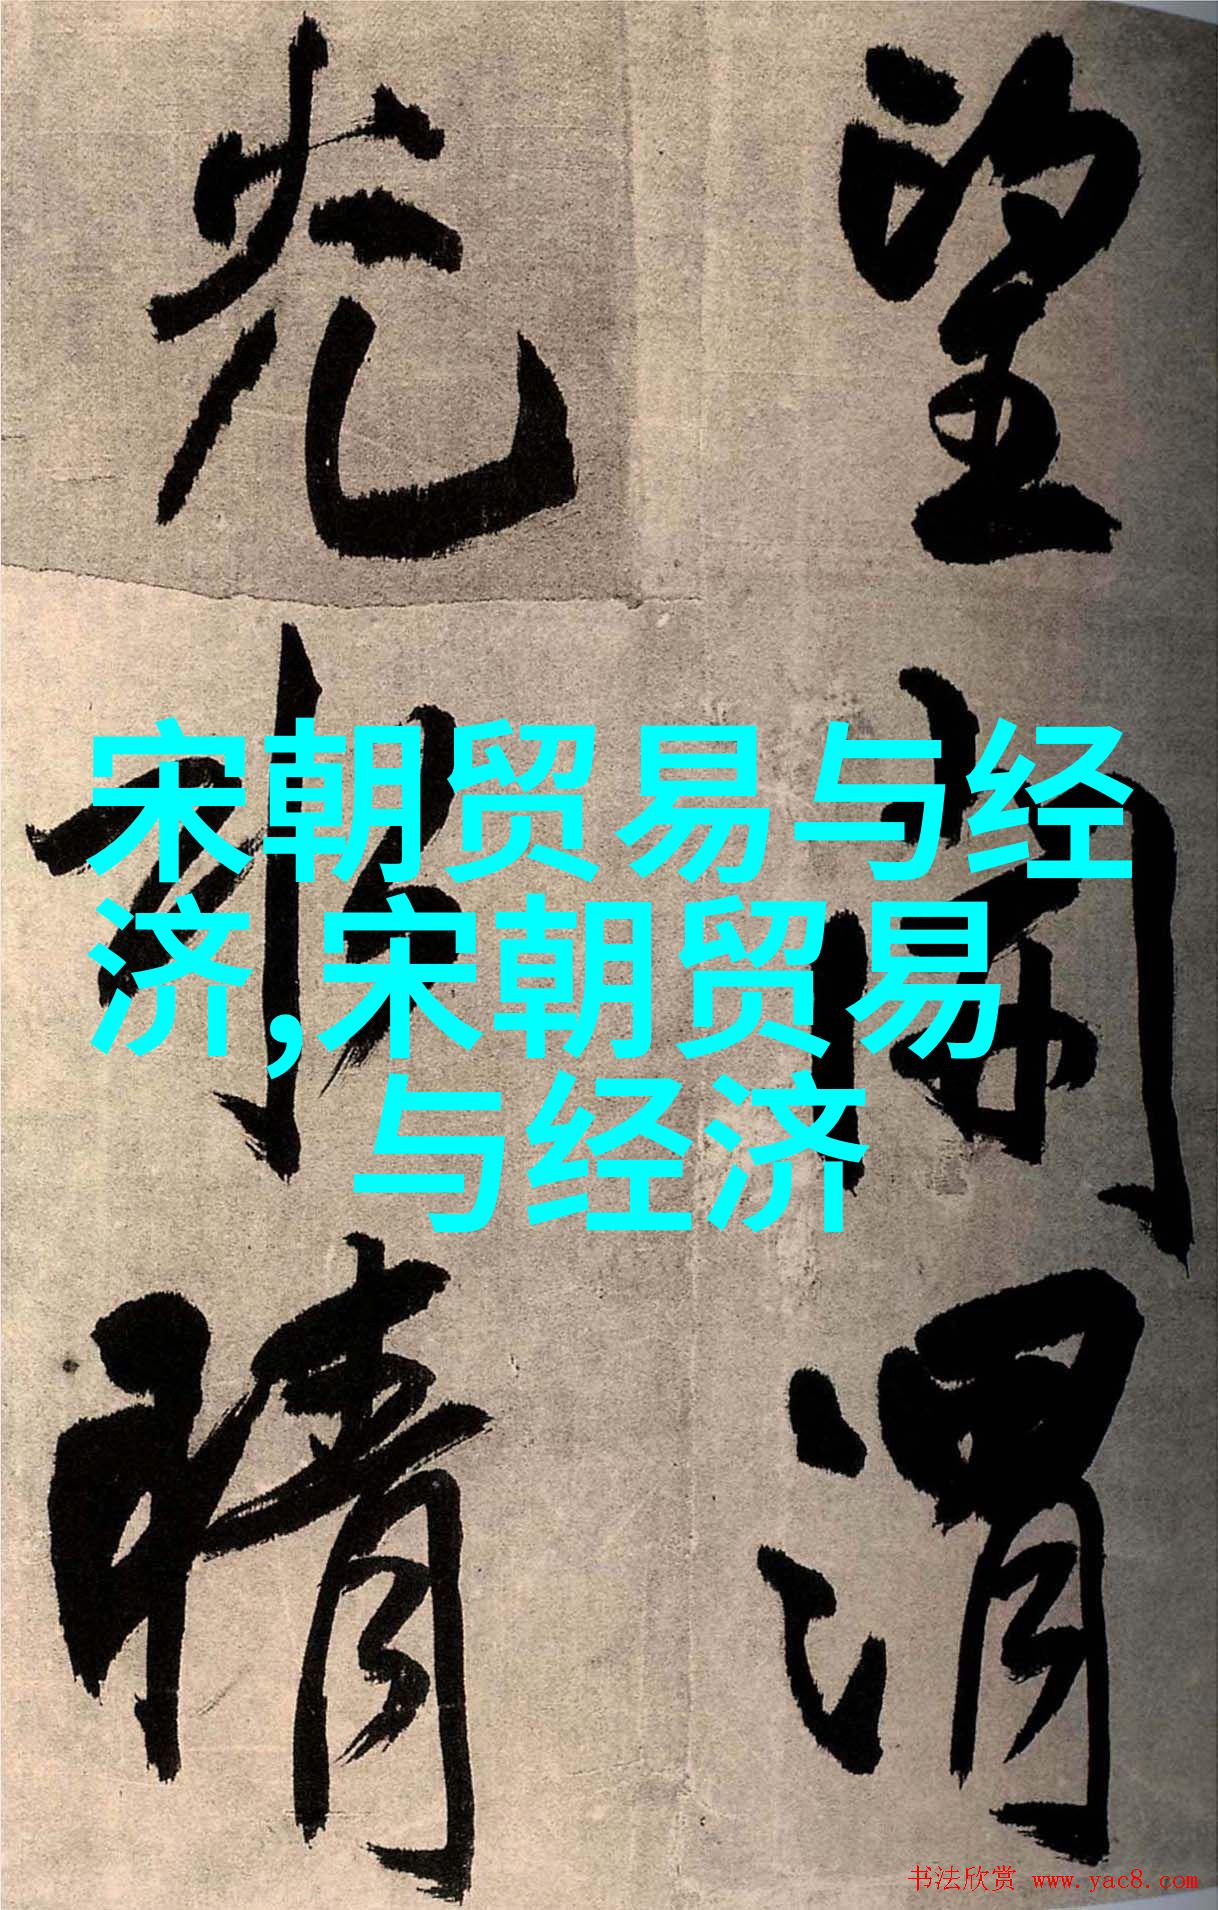 望 渭
光 晴
宋朝贸易与经
济,宋朝贸易
与经济
书法欣赏 www.yac8.com